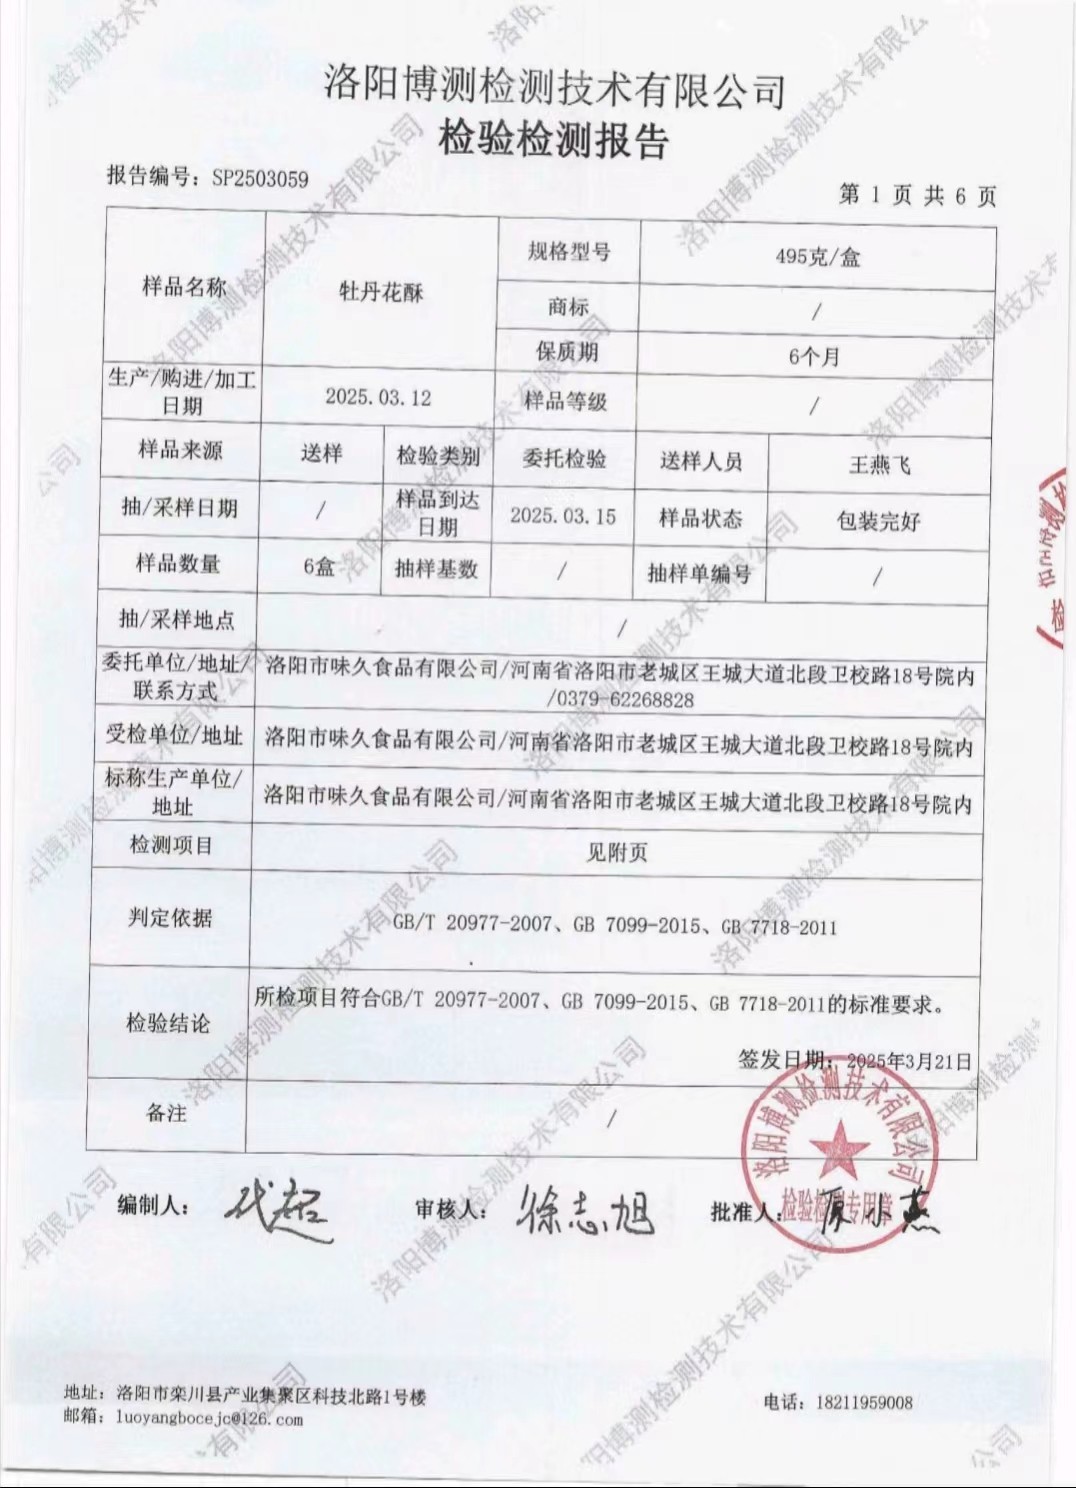 洛阳博测检测技术有限公司
检验检测报告
报告编号：SP2503059
第 1 页 共 6 页
样品名称
牡丹花酥
规格型号
495克/盒
商标
/
保质期
6个月
生产/购进/加工
日期
2025.03.12
样品等级
/
样品来源
送样
检验类别
委托检验
送样人员
王燕飞
抽/采样日期
/
样品到达
日期
2025.03.15
样品状态
包装完好
样品数量
6盒
抽样基数
/
抽样单编号
/
抽/采样地点
/
委托单位/地址/
联系方式
洛阳市味久食品有限公司/河南省洛阳市老城区王城大道北段卫校路18号院内
/0379-62268828
受检单位/地址
洛阳市味久食品有限公司/河南省洛阳市老城区王城大道北段卫校路18号院内
标称生产单位/
地址
洛阳市味久食品有限公司/河南省洛阳市老城区王城大道北段卫校路18号院内
检测项目
见附页
判定依据
GB/T 20977-2007、GB 7099-2015、GB 7718-2011
检验结论
所检项目符合GB/T 20977-2007、GB 7099-2015、GB 7718-2011的标准要求。
签发日期：2025年3月21日
备注
/
洛阳博测检测技术有限公司
检验检测专用章
编制人：
审核人：徐志旭
批准人：原小燕
地址：洛阳市栾川县产业集聚区科技北路1号楼
电话：18211959008
邮箱：luoyangbocejc@126.com